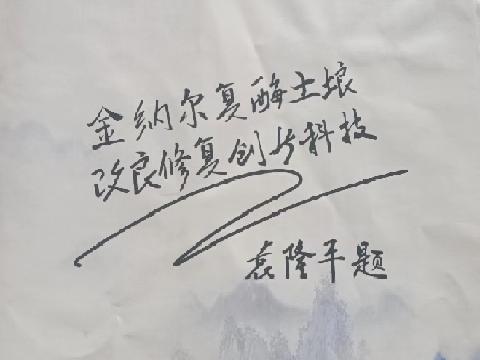 金纳尔复酶土壤
改良修复创与科技
袁隆平题